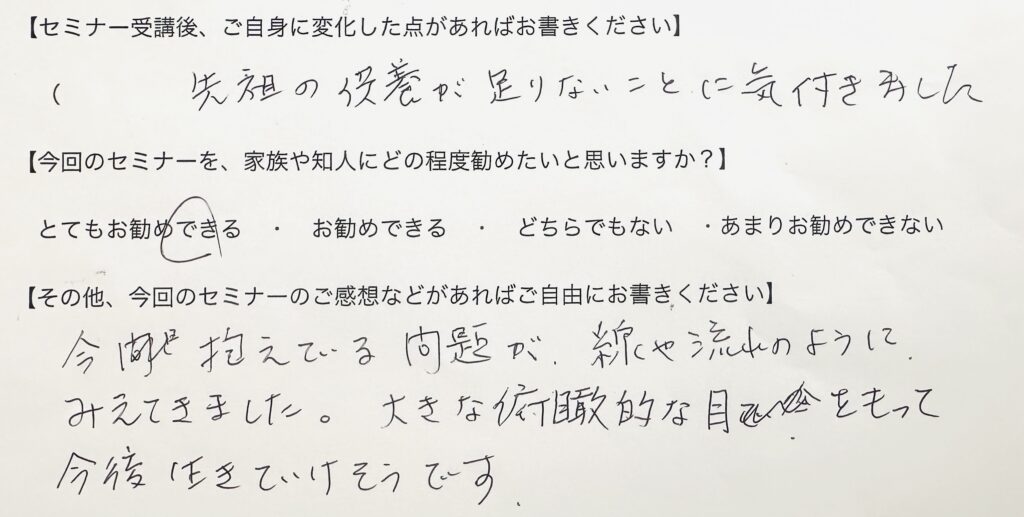 【セミナー受講後、ご自身に変化した点があればお書きください】
( 先祖の供養が足りないことに気付きました
【今回のセミナーを、家族や知人にどの程度勧めたいと思いますか?】
とてもお勧めできる ・ お勧めできる ・ どちらでもない ・あまりお勧めできない
【その他、今回のセミナーのご感想などがあればご自由にお書きください】
今 抱えている問題が、線や流れのように
みえてきました。大きな俯瞰的な目をもって
今後生きていけそうです.